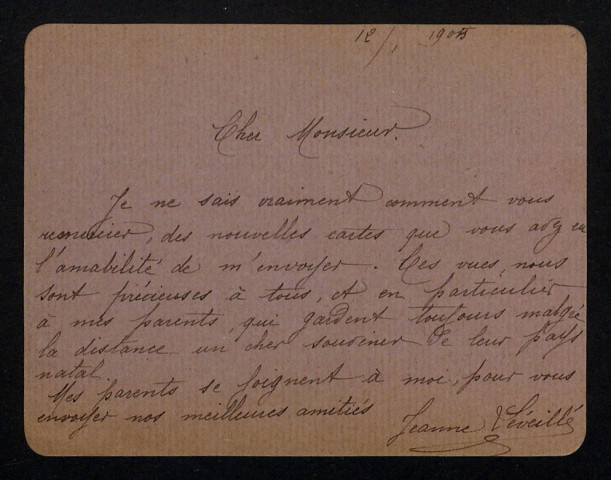 12/1 1905
Cher Monsieur.
Je ne sais vraiment comment vous
remercier, des nouvelles cartes que vous avez eu
l'amabilité de m'envoyer. Ces vues, nous
sont précieuses à tous, et en particulier
à mes parents, qui gardent toujours malgré
la distance un cher souvenir de leur pays
natal.
Mes parents se joignent à moi, pour vous
envoyer nos meilleures amitiés
Jeanne Léveillé